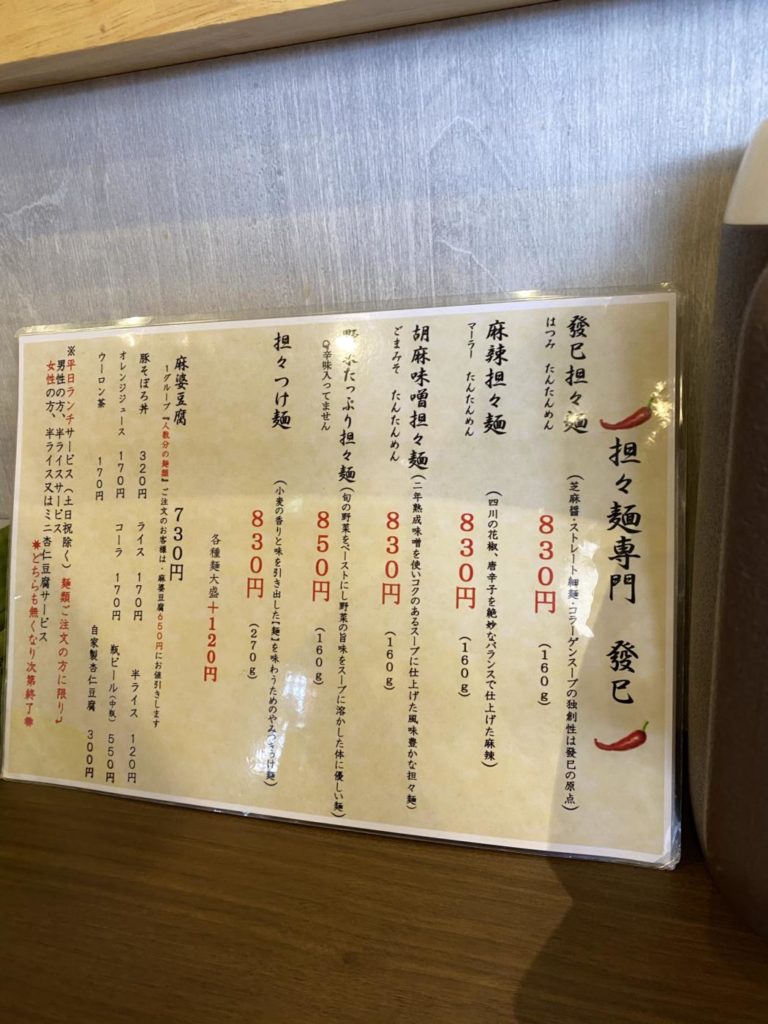 担々麺専門 發巳
發巳担々麺
はつみ たんたんめん
(芝麻醤・ストレート細麺・コラーゲンスープの独創性は發巳の原点)
830円
(160g)
麻辣担々麺
マーラー たんたんめん
(四川の花椒、唐辛子を絶妙なバランスで仕上げた麻辣)
830円
(160g)
胡麻味噌担々麺
ごまみそ たんたんめん
(二年熟成味噌を使いコクのあるスープに仕上げた風味豊かな担々麺)
830円
(160g)
野菜たっぷり担々麺
辛味入ってません
(旬の野菜をペーストにし野菜の旨味をスープに溶かした体に優しい麺)
850円
(160g)
担々つけ麺
(小麦の香りと味を引き出した【麺】を味わうためのやみつきつけ麺)
830円
(270g)
各種麺大盛+120円
麻婆豆腐 730円
1グループ『人数分の麺類』ご注文のお客様は・麻婆豆腐650円にお値引きします
豚そぼろ丼 320円 ライス 170円 半ライス 120円
オレンジジュース 170円 コーラ 170円 瓶ビール(中瓶) 550円
ウーロン茶 170円 自家製杏仁豆腐 300円
※平日ランチサービス(土日祝除く)麺類ご注文の方に限り
男性の方、半ライスサービス
女性の方、半ライス又はミニ杏仁豆腐サービス
※どちらも無くなり次第終了※